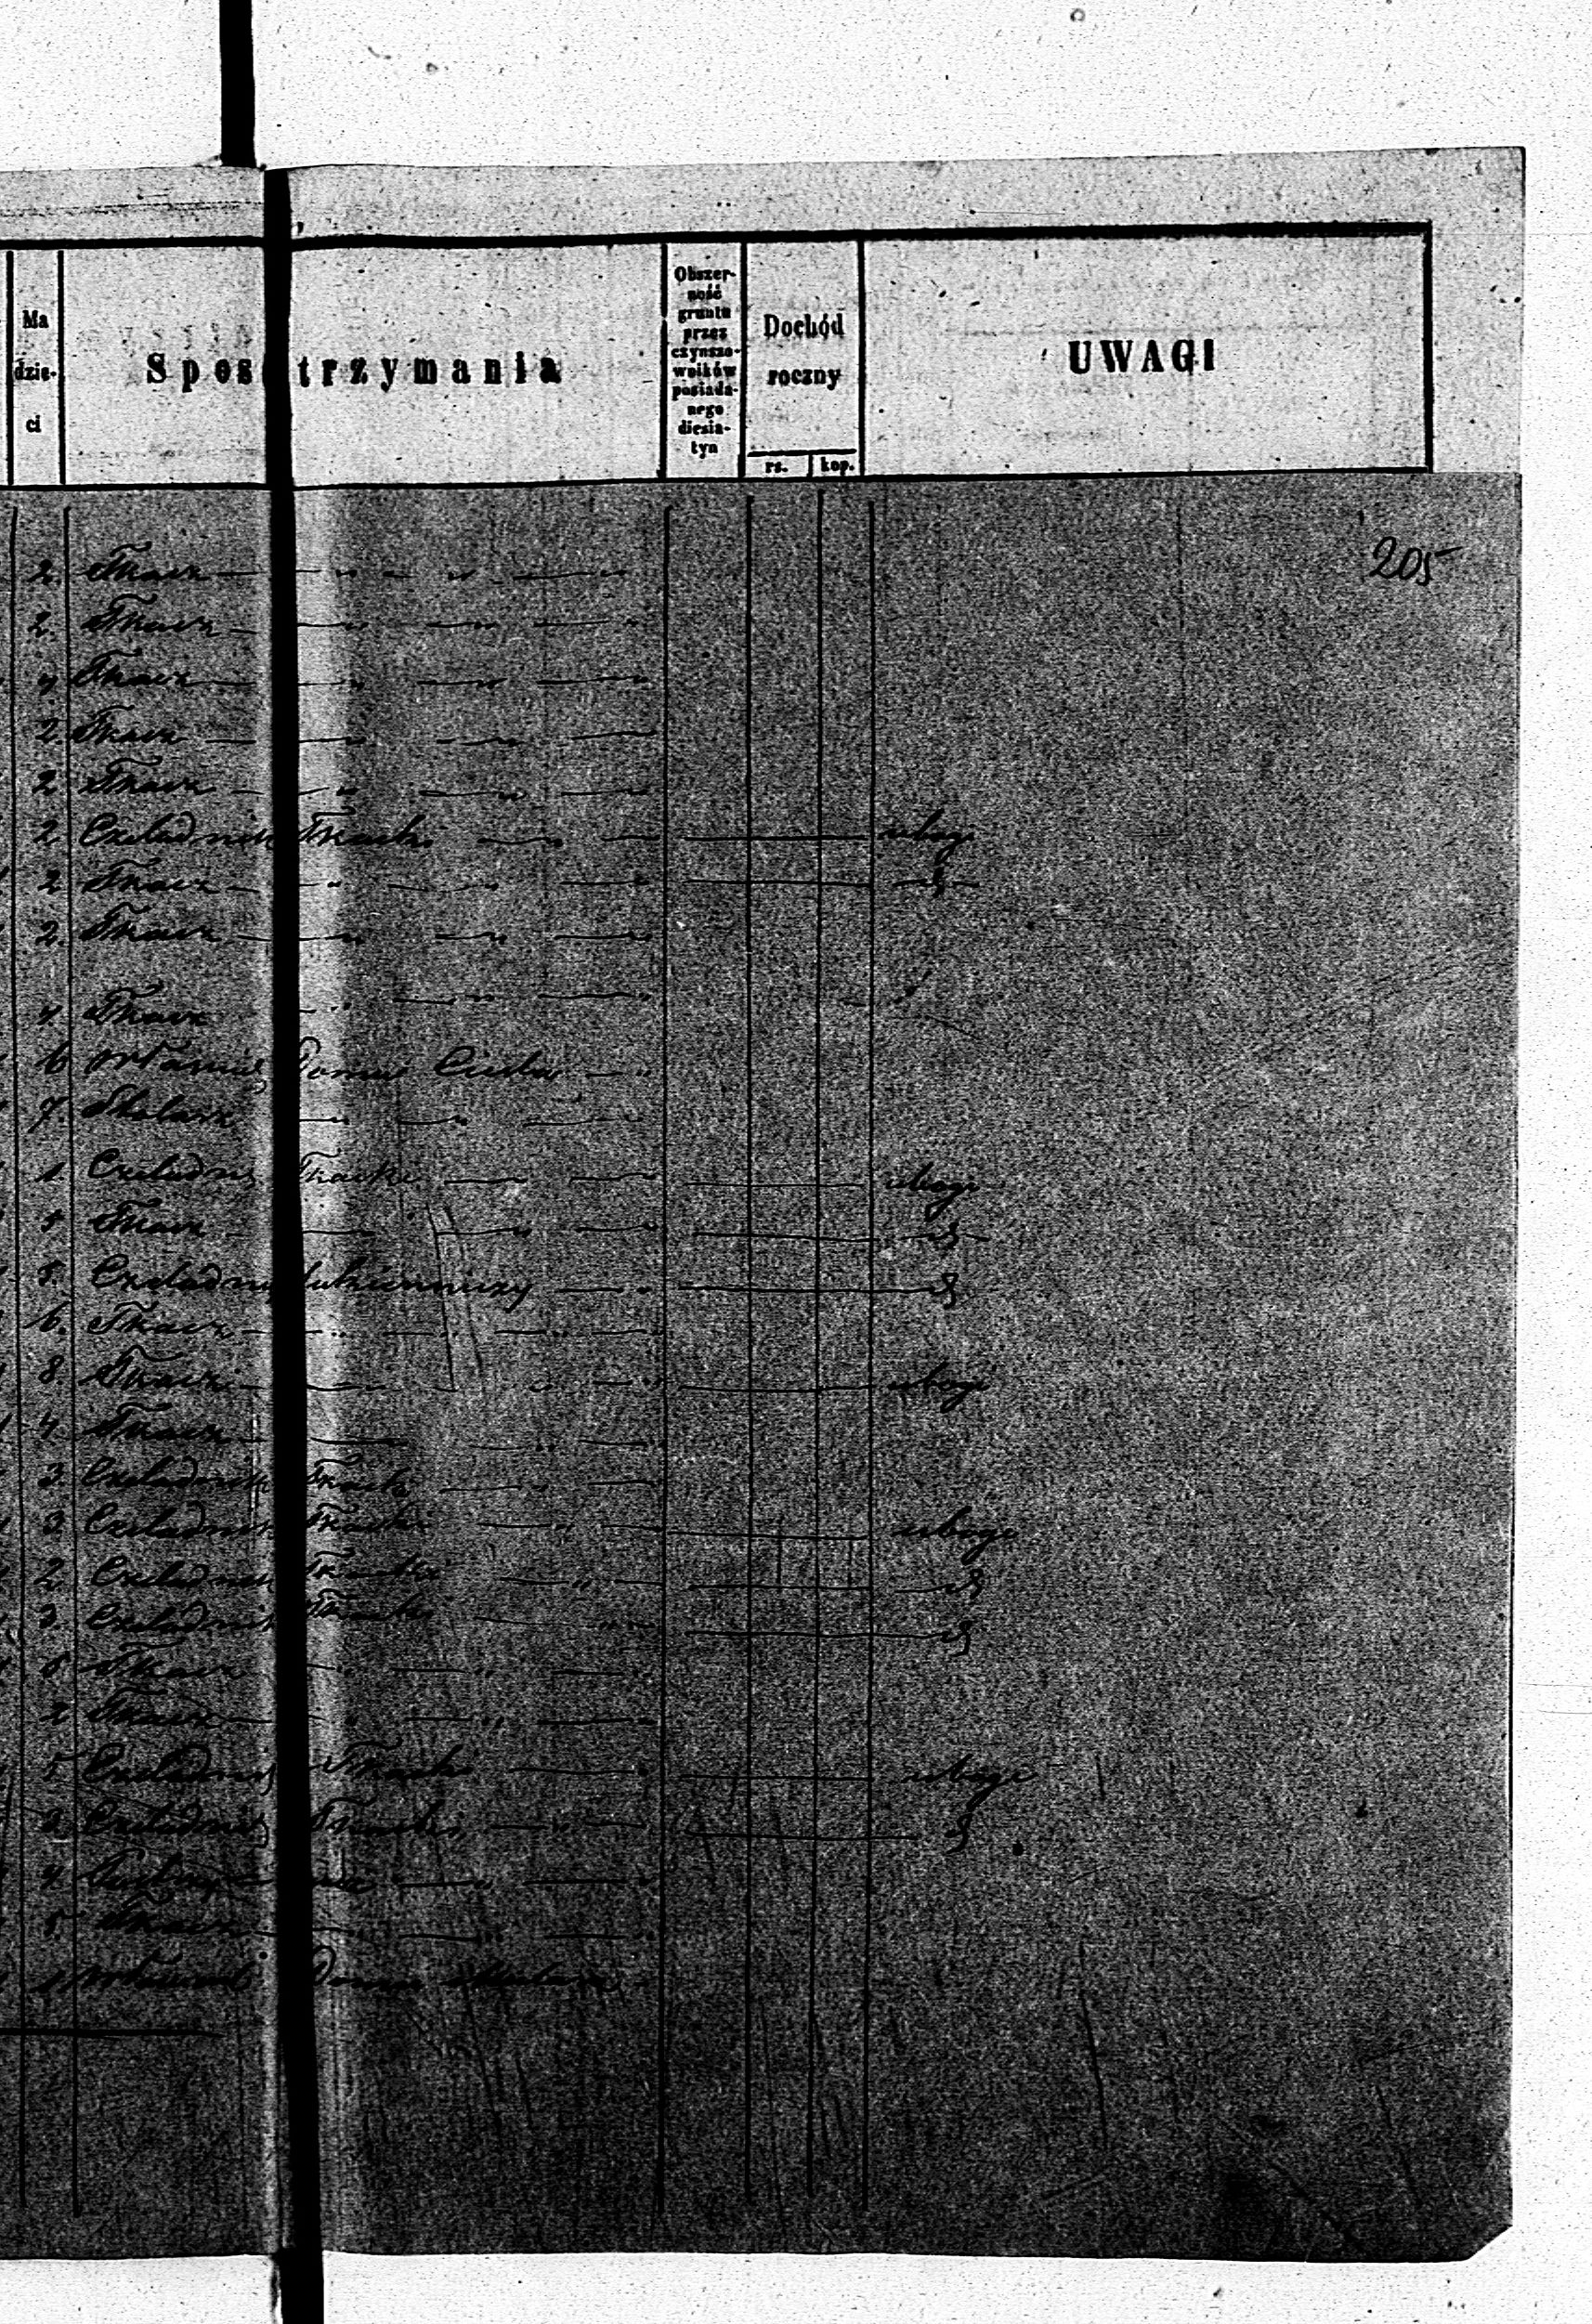 Ma dzie- ci
Spos trzymania
Obszer- ność gruntu przez czynszo- wników posiada- nego diesia- tyn
Dochód roczny
rs. kop.
UWAGI
205
2. Tkacz — „ — „ — „
2. Tkacz — „ — „ — „
4. Tkacz — „ — „ — „
2. Tkacz — „ — „ —
2. Tkacz — „ — „ —
2. Czeladnik Tkacki — „ — ubogi
2 Tkacz — „ — „ — d
2. Tkacz — „ — „ —
4. Tkacz — „ — „ — „
6 Właścic Domu Cieśla — „
7. Stolarz — „ — „ — „
1. Czeladni Tkacki — „ — „ ubogi
5 Tkacz — „ — „ d
5. Czeladni sukienniczy — „ d
6. Tkacz — „ — „ — „
8 Tkacz — „ — „ ubogi
4. Tkacz — „ — „
3. Czeladnik Tkacki — „ —
3 Czeladnik Tkacki — „ — ubogi
2. Czeladnik Tkacki — „ — d
3 Czeladnik Tkacki — „ d
5 Tkacz — „ — „ — „
2 Tkacz — „ — „ —
5 Czeladni Tkacki — „ ubogi
3 Czeladnik Tkacki — „ — d
4 — „ — „
5 Tkacz — „ — „
1 Właścici Domu